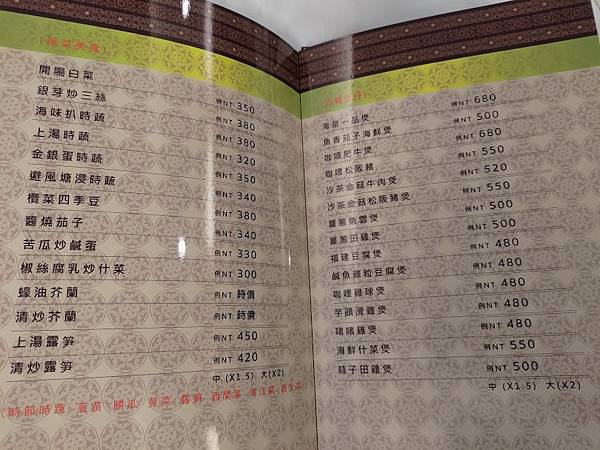 (蔬菜美食)
開腸白菜 例NT 350
銀芽炒三絲 例NT 380
海味扒時蔬 例NT 380
上湯時蔬 例NT 320
金銀蛋時蔬 例NT 350
避風塘浸時蔬 例NT 340
欖菜四季豆 例NT 380
醬燒茄子 例NT 340
苦瓜炒鹹蛋 例NT 330
椒絲腐乳炒什菜 例NT 300
蠔油芥蘭 例NT 時價
清炒芥蘭 例NT 時價
上湯露笋 例NT 450
清炒露笋 例NT 420
中 (X1.5) 大(X2)
(時節時蔬: 豆苗 勝瓜 莧菜 露笋 西蘭菜
海皇一品煲 例NT 680
魚香茄子海鮮煲 例NT 500
咖哩肥牛煲 例NT 680
咖哩松阪豬 例NT 550
沙茶金菇牛肉煲 例NT 520
沙茶金菇松阪豬煲 例NT 550
薑蔥魚雲煲 例NT 500
薑蔥田雞煲 例NT 550
福建豆腐煲 例NT 500
鹹魚雞粒豆腐煲 例NT 480
咖哩雞球煲 例NT 480
芋頭滑雞煲 例NT 480
啫啫雞煲 例NT 480
海鮮什菜煲 例NT 550
蒜子田雞煲 例NT 500
中 (X1.5) 大(X2)